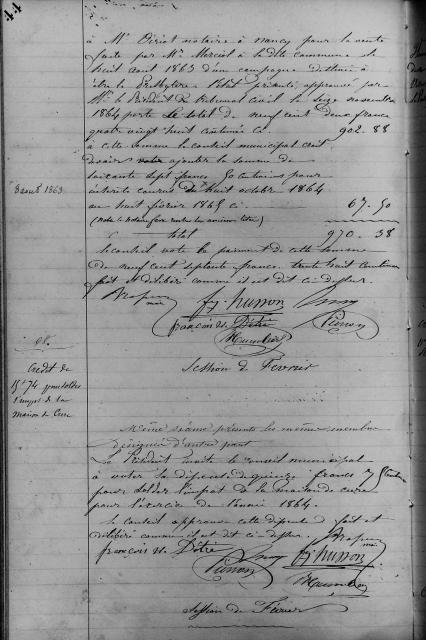 44
à Mr Oiriot notaire à nancy pour la vente
faite par Mr Merciol à la dite commune le
huit aout 1863 d'une campagne destinée à
être le Presbytère. L'état présenté, approuvé par
Mr le Président du tribunal Civil le seize novembre
1864 porte le total de neuf cent deux francs
quatre vingt huit centimes ci 902.88
à cette somme le conseil municipal croit
devoir ajouter la somme de
soixante sept francs 50 centimes pour
interêts courus du huit octobre 1864
au huit février 1865 ci 67.50
total 970.38
8 aout 1863
le conseil vote le paiement de cette somme
de neuf cent septante francs trente huit centimes
fait et délibéré comme il est dit ci-dessus.
fj. husson
françois N. Détré
Session de Fevrier
Crédit de
15f 74 pour solder
l'impôt de la
maison de Cure
Même séance présents les mêmes membres
désignés d'autre part
Le Président invite le conseil municipal
à voter la dépense de quinze francs 7 
pour solder l'impôt de la maison de cure
pour l'exercice de l'année 1864.
Le conseil approuve cette dépense fait et
délibéré comme il est dit ci-dessus.
françois N. Détré
fj. husson
Session de Février